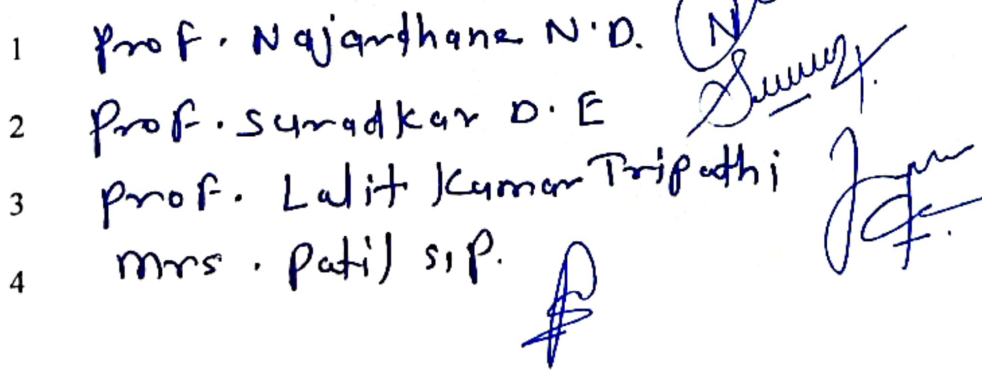 1 Prof. Najardhane N.D.
2 Prof. Suradkar D.E
3 Prof. Lalit Kumar Tripathi
4 Mrs. Patil S.P.